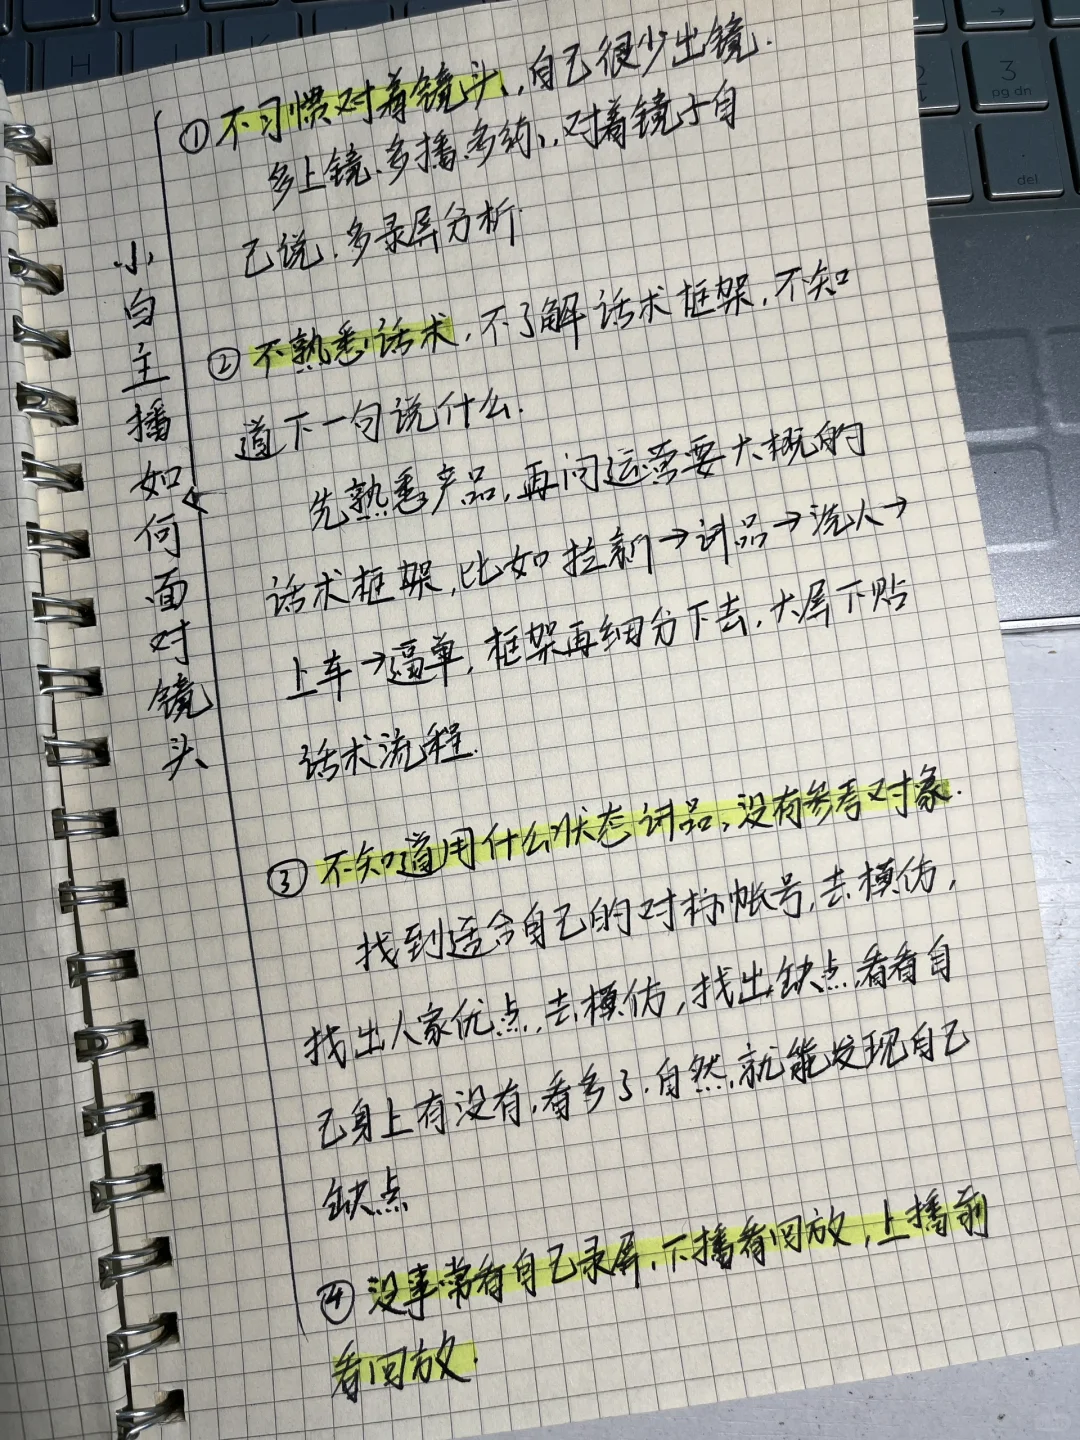 小白主播如何面对镜头
① 不习惯对着镜头,自己很少出镜.
多上镜、多播、多练,对着镜子自
己说,多录屏分析.
② 不熟悉话术,不了解话术框架,不知
道下一句说什么.
先熟悉产品,再问运营要大概的
话术框架,比如拉新→讲品→洗人→
上车→逼单,框架再细分下去,大屏下贴
话术流程.
③ 不知道用什么状态讲品,没有参考对象.
找到适合自己的对标帐号,去模仿,
找出人家优点,去模仿,找出缺点,看看自
己身上有没有,看多了.自然,就能发现自己
缺点
④ 没事常看自己录屏,下播看回放,上播前
看回放.
3
pg dn
del